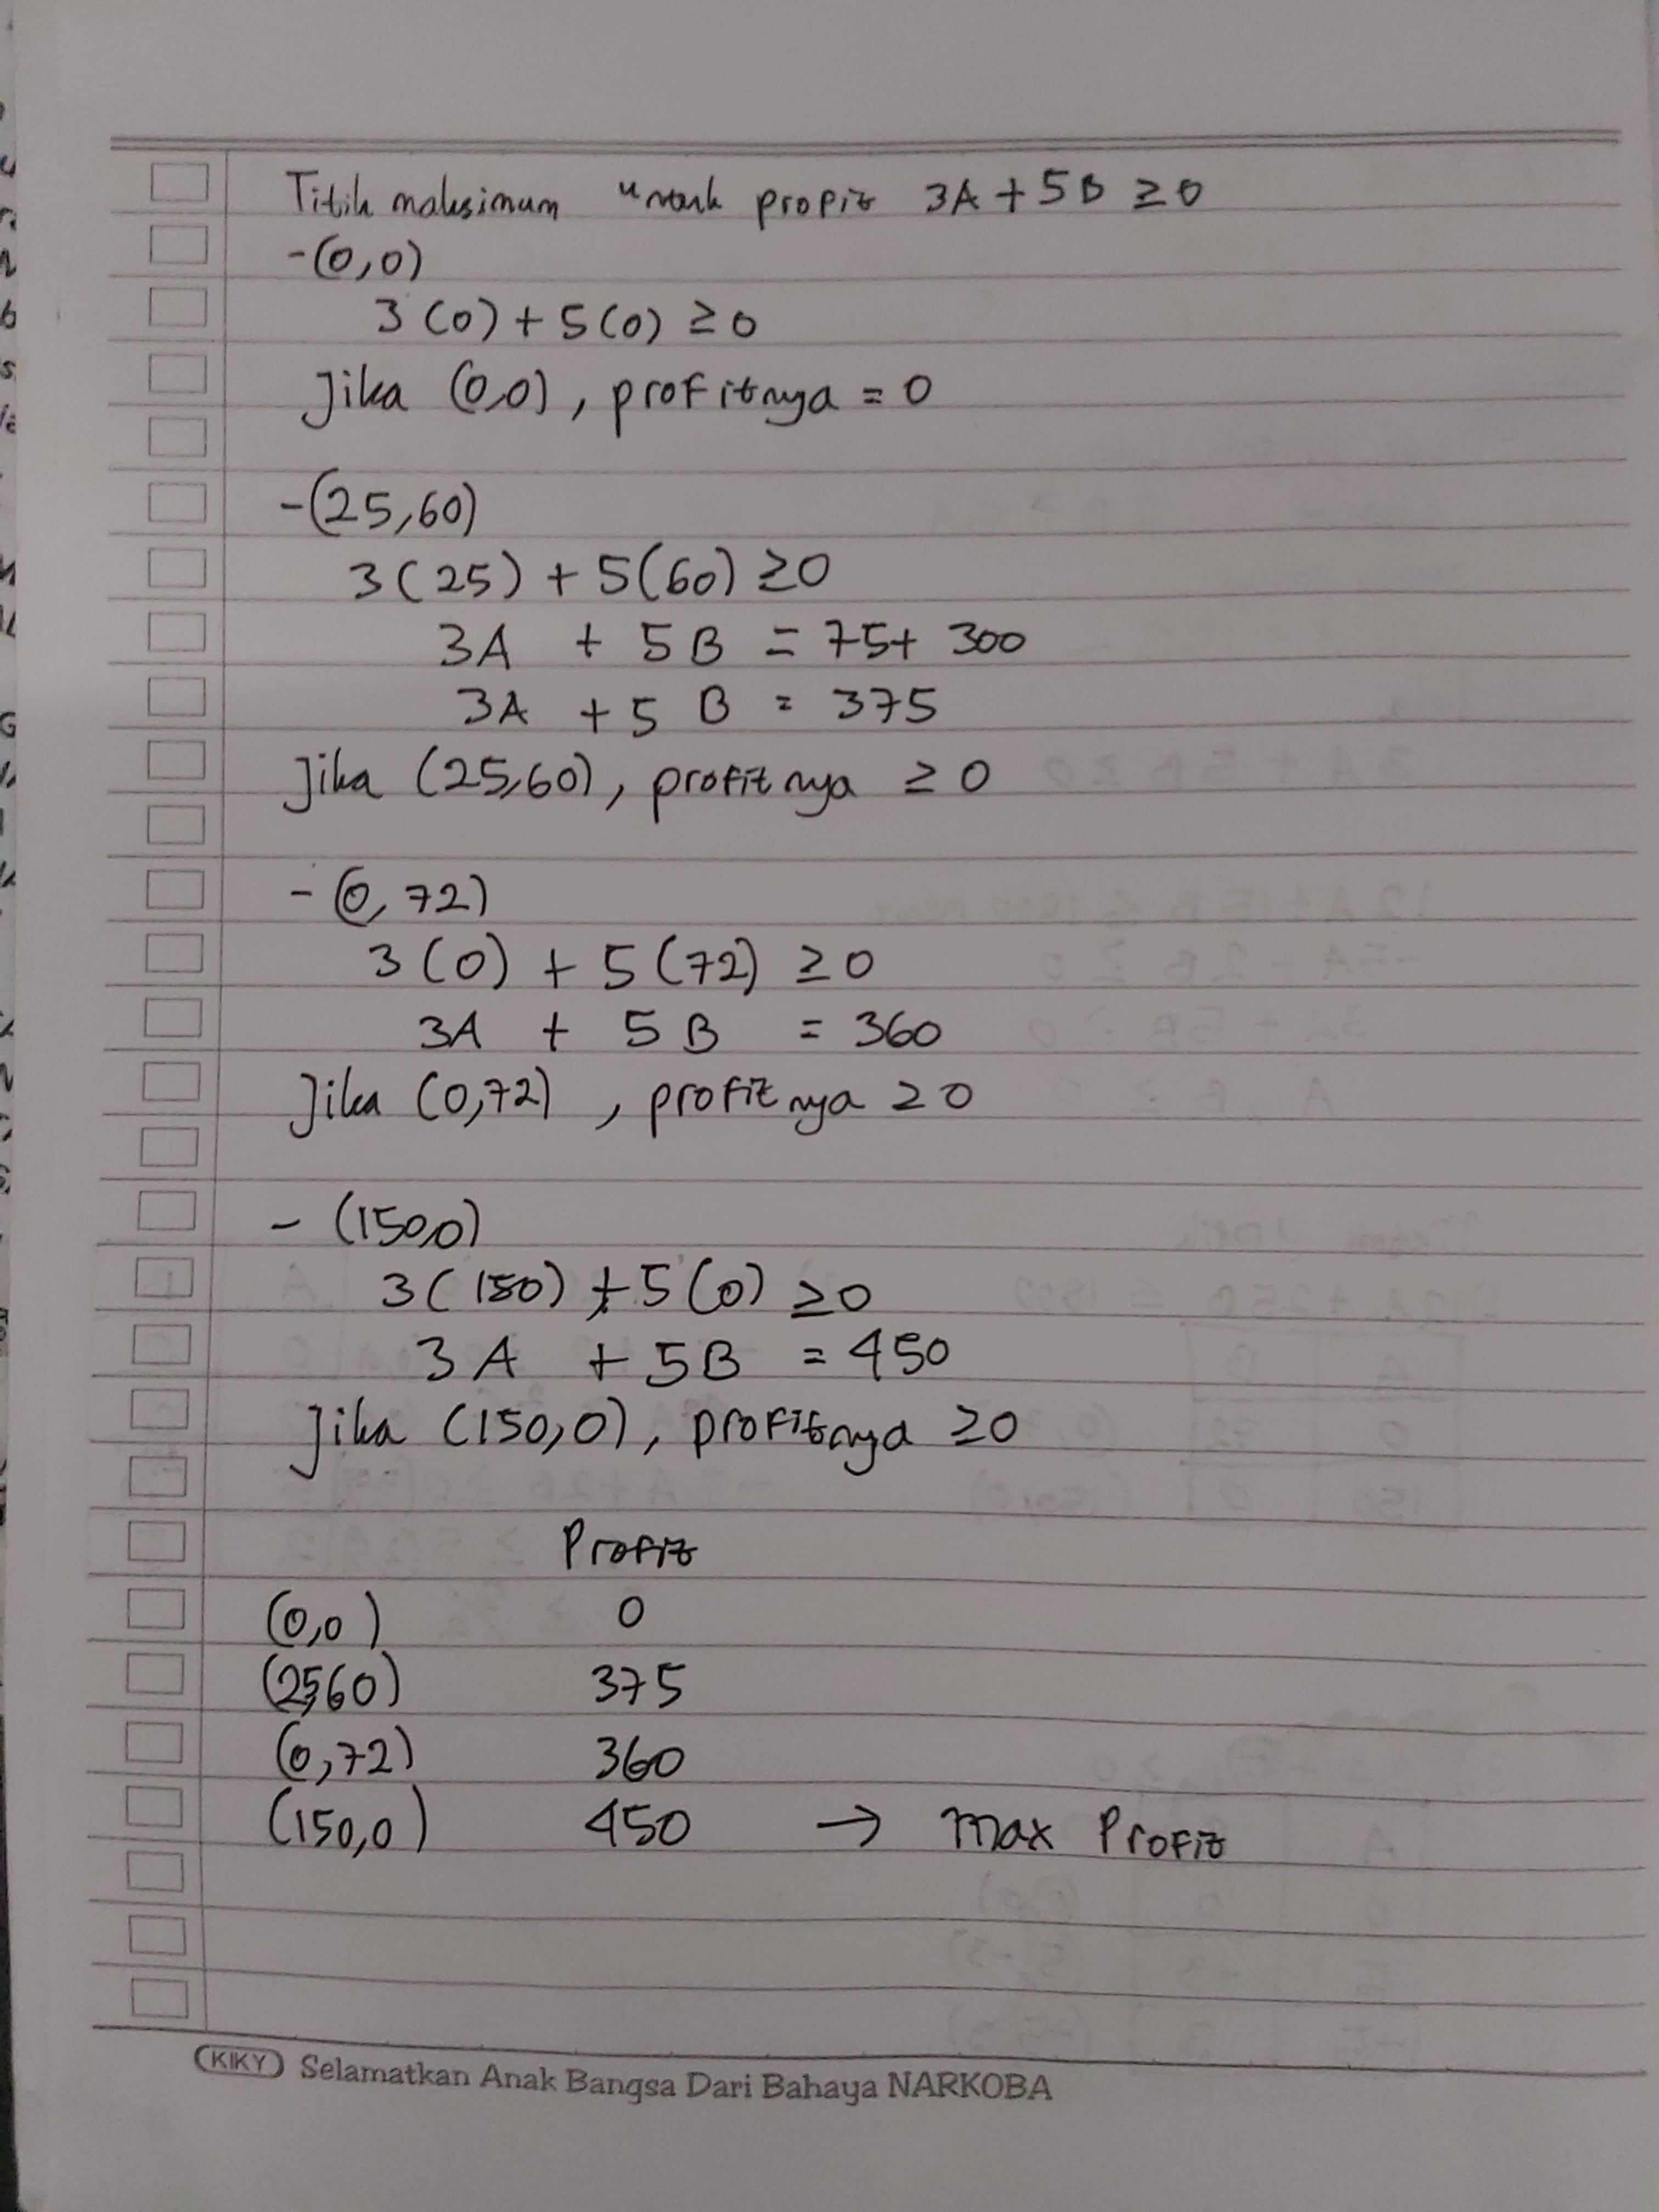 Titik maksimum untuk propit 3A + 5B ≥ 0
-(0,0)
3(0) + 5(0) ≥ 0
Jika (0,0), profitnya = 0
-(25,60)
3(25) + 5(60) ≥ 0
3A + 5B = 75 + 300
3A + 5B = 375
Jika (25,60), profitnya ≥ 0
-(0,72)
3(0) + 5(72) ≥ 0
3A + 5B = 360
Jika (0,72), profitnya ≥ 0
- (150,0)
3(150) + 5(0) ≥ 0
3A + 5B = 450
Jika (150,0), profitnya ≥ 0
Profit
(0,0) 0
(25,60) 375
(0,72) 360
(150,0) 450 → max Profit
KIKY Selamatkan Anak Bangsa Dari Bahaya NARKOBA